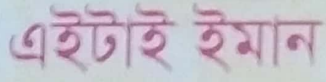 এইটোই ইমান